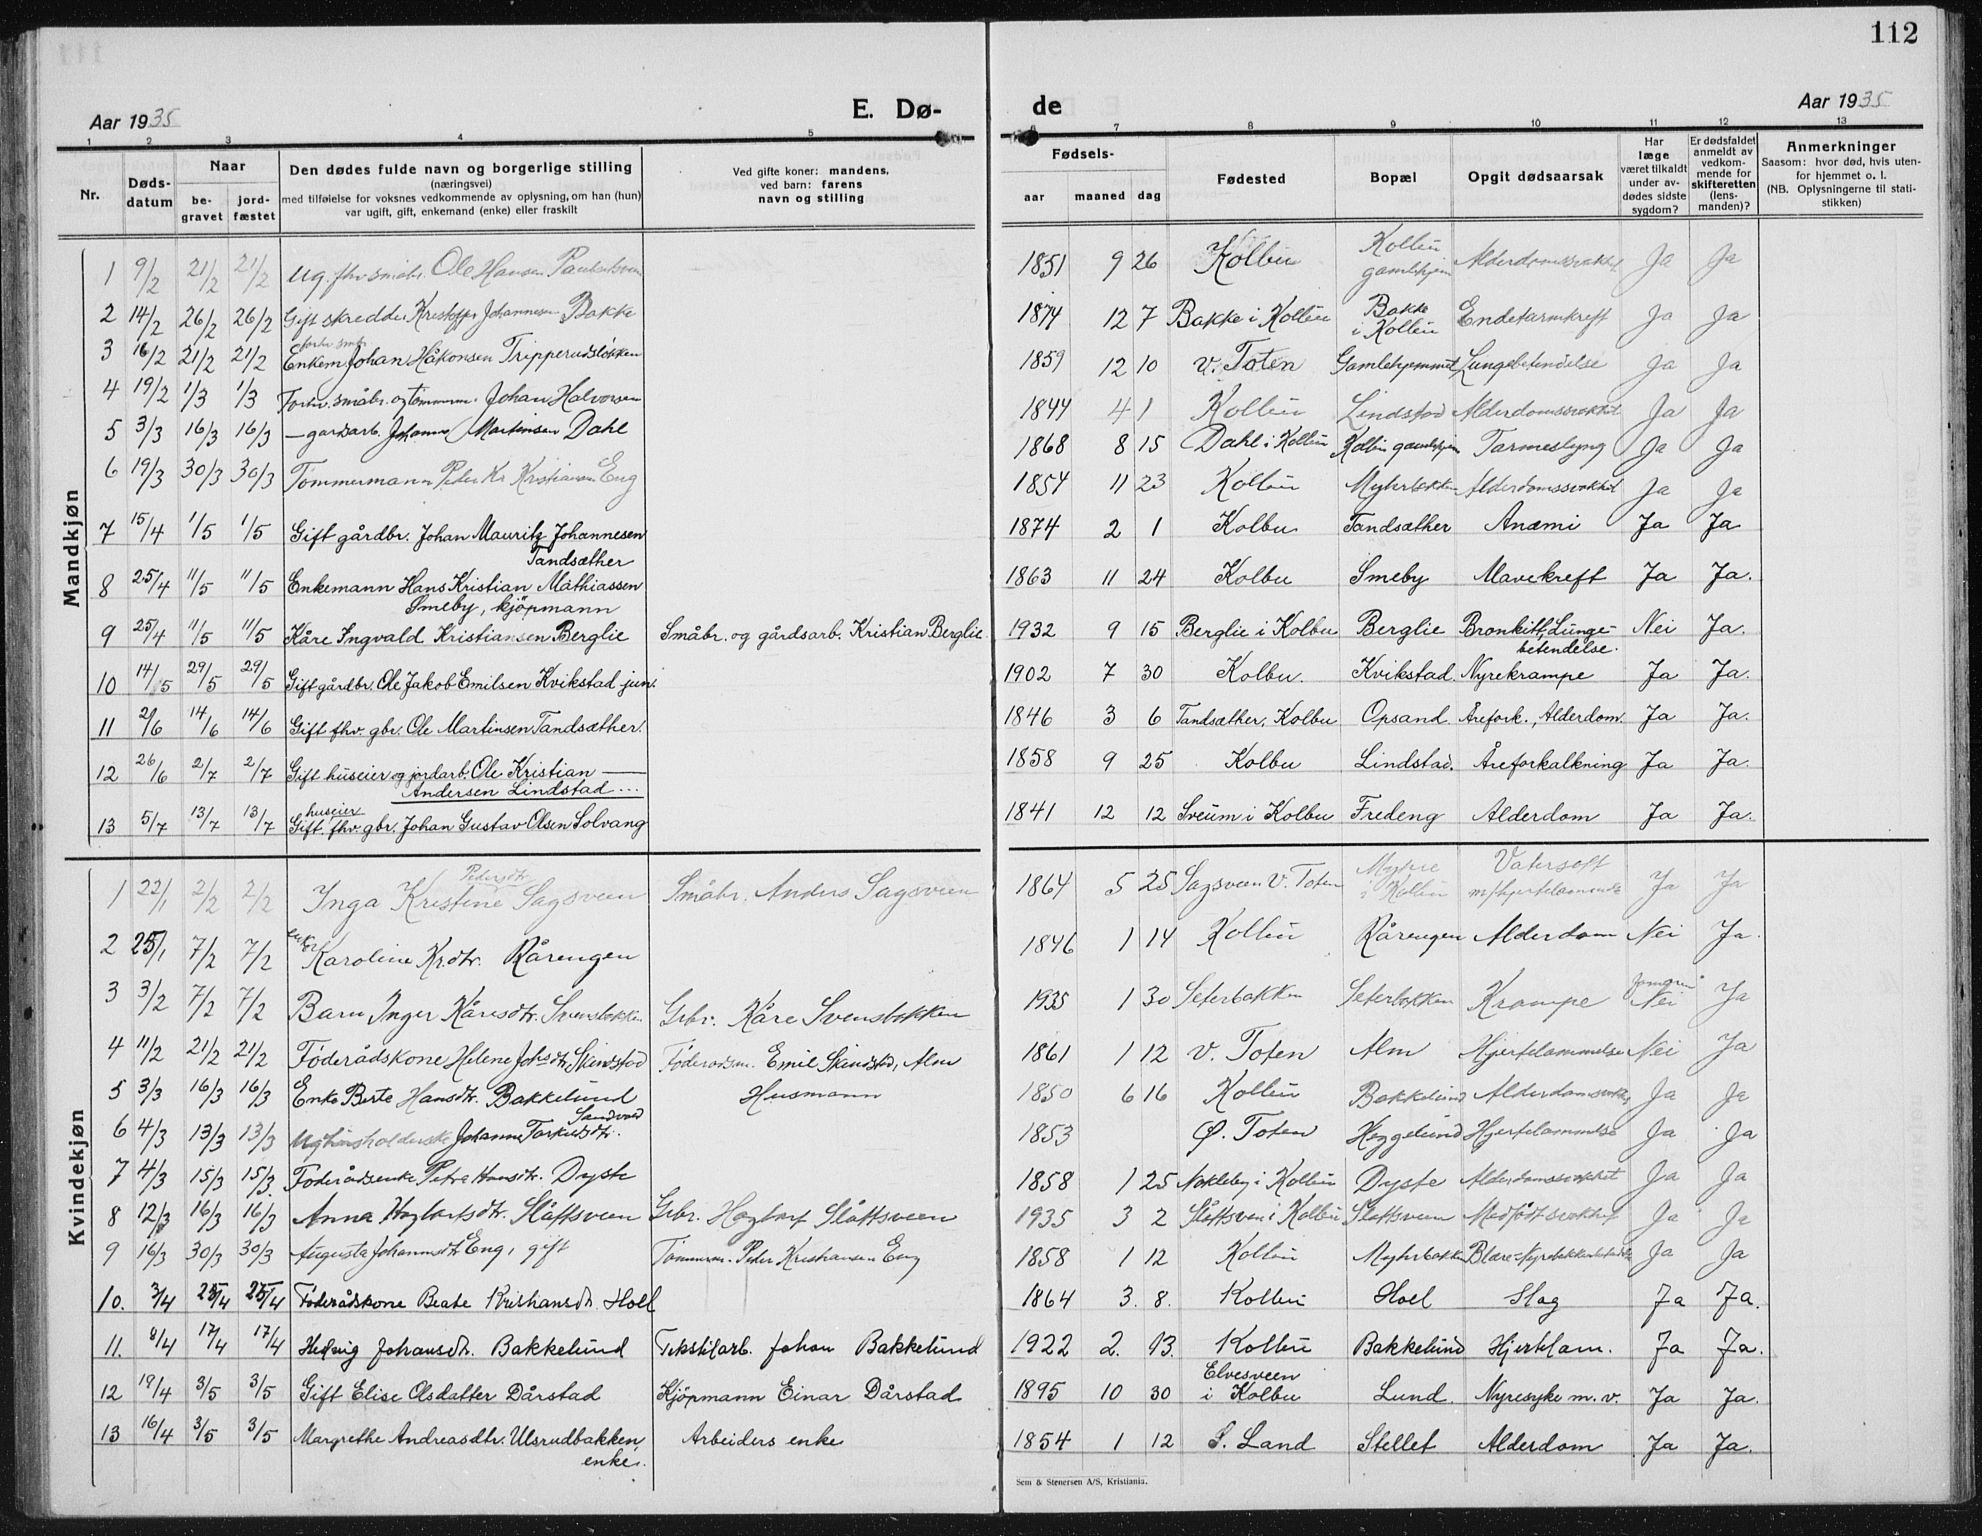 112
Aar 1935 E. Dø- de Aar 1935
1 2 3 4 5 6 7 8 9 10 11 12 13
Nr.
Døds-
datum
Naar
be-
gravet
jord-
fæstet
Den dødes fulde navn og borgerlige stilling
(næringsvei)
med tilføielse for voksnes vedkommende av oplysning, om han (hun)
var ugift, gift, enkemand (enke) eller fraskilt
Ved gifte koner: mandens,
ved barn: farens
navn og stilling
Fødsels-
aar maaned dag
Fødested
Bopæl
Opgit dødsaarsak
Har
læge
været tilkaldt
under av-
dødes sidste
sygdom?
Er dødsfaldet
anmeldt av
vedkom-
mende for
skifteretten
(lens-
manden)?
Anmerkninger
Saasom: hvor død, hvis uten-
for hjemmet o. l.
(NB. Oplysningerne til stati-
stikken)
Mandkjøn
1 9/2 21/2 21/2 Ug. fhv. småbr. Ole Hansen 1851 9 26 Kolbu Kolbu gamlehjem Alderdomssvakhet Ja Ja
2 14/2 26/2 26/2 Gift skredder Kristoffer Johannesen Bakke 1874 12 7 Bakke i Kolbu Bakke i Kolbu Endetarmkreft Ja Ja
3 16/2 21/2 21/2 Enkem. forhv. småbr. Johan Håkonsen Tripperudsløkken 1859 12 10 V. Toten Gamlehjemmet Lungebetendelse Ja Ja
4 19/2 1/3 1/3 Forhv. småbr. og tømmerm. Johan Halvorsen 1844 4 1 Kolbu Lindstad Alderdomssvakhet Ja Ja
5 3/3 16/3 16/3 — gardarb. Johannes Martinsen Dahl 1868 8 15 Dahl i Kolbu Kolbu gamlehjem Tarmeslyng Ja Ja
6 19/3 30/3 30/3 Tømmermann Peder Kr. Kristiansen Eng 1854 11 23 Kolbu Myhrbakken Alderdomssvakhet Ja Ja
7 15/4 1/5 1/5 Gift gårdbr. Johan Mauritz Johannesen 1874 2 1 Kolbu Tandsæther Anæmi Ja Ja
Tandsæther
8 25/4 11/5 11/5 Enkemann Hans Kristian Mathiassen 1863 11 24 Kolbu Smeby Mavekreft Ja Ja.
Smeby, kjøpmann
9 25/4 11/5 11/5 Kåre Ingvald Kristiansen Berglie Småbr. og gårdsarb. Kristian Berglie 1932 9 15 Berglie i Kolbu Berglie Bronkitt, Lunge- Nei Ja.
betendelse.
10 14/5 29/5 29/5 Gift gårdbr. Ole Jakob Emilsen Kvikstad jun. 1902 7 30 Kolbu. Kvikstad. Nyrekrampe Ja Ja.
11 2/6 14/6 14/6 Gift fhv. gbr. Ole Martinsen Tandsæther. 1846 3 6 Tandsæther, Kolbu Opsand Årefork., Alderdom. Ja Ja.
12 26/6 2/7 2/7 Gift huseier og jordarb. Ole Kristian — 1858 9 25 Kolbu Lindstad. Åreforkalkning Ja Ja.
Andersen Lindstad ...
huseier
13 5/7 13/7 13/7 Gift fhv. gbr. Johan Gustav Olsen Solvang 1841 12 12 Sveum i Kolbu Fredeng Alderdom Ja Ja.
Kvindekjøn
1 22/1 2/2 2/2 Inga Kristine Pedersdtr. Sagsveen Småbr. Anders Sagsveen 1864 5 25 Sagsveen V. Toten i Kolbu Vatersott m/hjertelammelse Ja Ja
2 25/1 7/2 7/2 enke Karoline Kr.dtr. Rårengen 1846 1 14 Kolbu Rårengen Alderdom Nei Ja.
3 3/2 7/2 7/2 Barn Inger Kåresdtr. Svensbakken Grbr. Kåre Svensbakken 1935 1 30 Seterbakken Seterbakken Krampe Nei Ja
4 11/2 21/2 21/2 Føderådskone Helene Johsdtr. Skindstad Føderadsm. Emil Skindstad, Alm 1861 1 12 V. Toten Alm Hjertelammelse Nei Ja
5 3/3 16/3 16/3 Enke Berte Hansdtr. Bakkelund Husmann 1850 6 16 Kolbu Bakkelund Alderdomssvakh. Ja Ja
6 4/3 13/3 13/3 Ug husholderske Johanne Torkildsdtr. Sandvold 1853 Ø. Toten Heggelund Hjertelammelse Ja Ja
7 4/3 15/3 15/3. Føderådsenke Petra Hansdtr. Dyste 1858 1 25 Nøkleby i Kolbu Dyste Alderdomssvakhet Ja Ja
8 12/3 16/3 16/3 Anna Hagbartsdtr. Slåttsveen Grbr. Hagbart Slåttsveen 1935 3 2 Slåttsveen i Kolbu Slåttsveen Medfødt svakhet Ja Ja
9 16/3 30/3 30/3 Augusta Johannesdtr. Eng, gift Tømmerm. Peder Kristiansen Eng 1858 1 12 Kolbu Myhrbakken Ja Ja
10. 3/4 25/4 25/4 Føderådskone Beate Kristiansdtr. Hoel 1864 3. 8. Kolbu Hoel Slag Ja Ja.
11. 8/4 17/4 17/4 Hedvig Johansdtr. Bakkelund Tekstilarb. Johan Bakkelund 1922 2. 13. Kolbu Bakkelund Hjertelam. Ja Ja.
12 19/4 3/5 3/5 Gift Elise Olsdatter Dårstad Kjöpmann Einar Dårstad 1895 10 30 Elvesveen i Kolbu Lund. Nyresyke m. v. Ja Ja.
13 16/4 3/5 3/5 Margrethe Andreasdtr. Ulsrudbakken Arbeiders enke 1854 1 12 S. Land Stellet Alderdom Ja Ja.
enke.
Sem & Stenersen A/S, Kristiania.